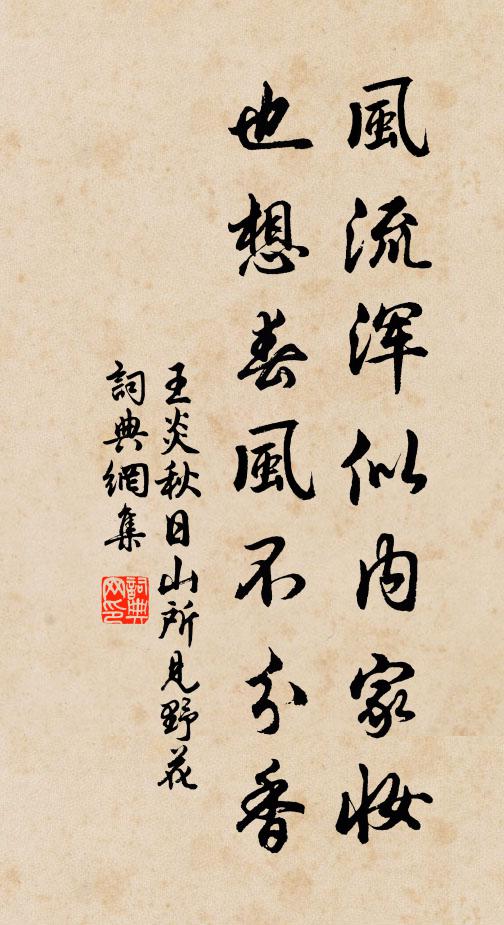 風流渾似内家妝
也想春風不分香
王炎秋日山所見野花
詞典網集
詞典網印